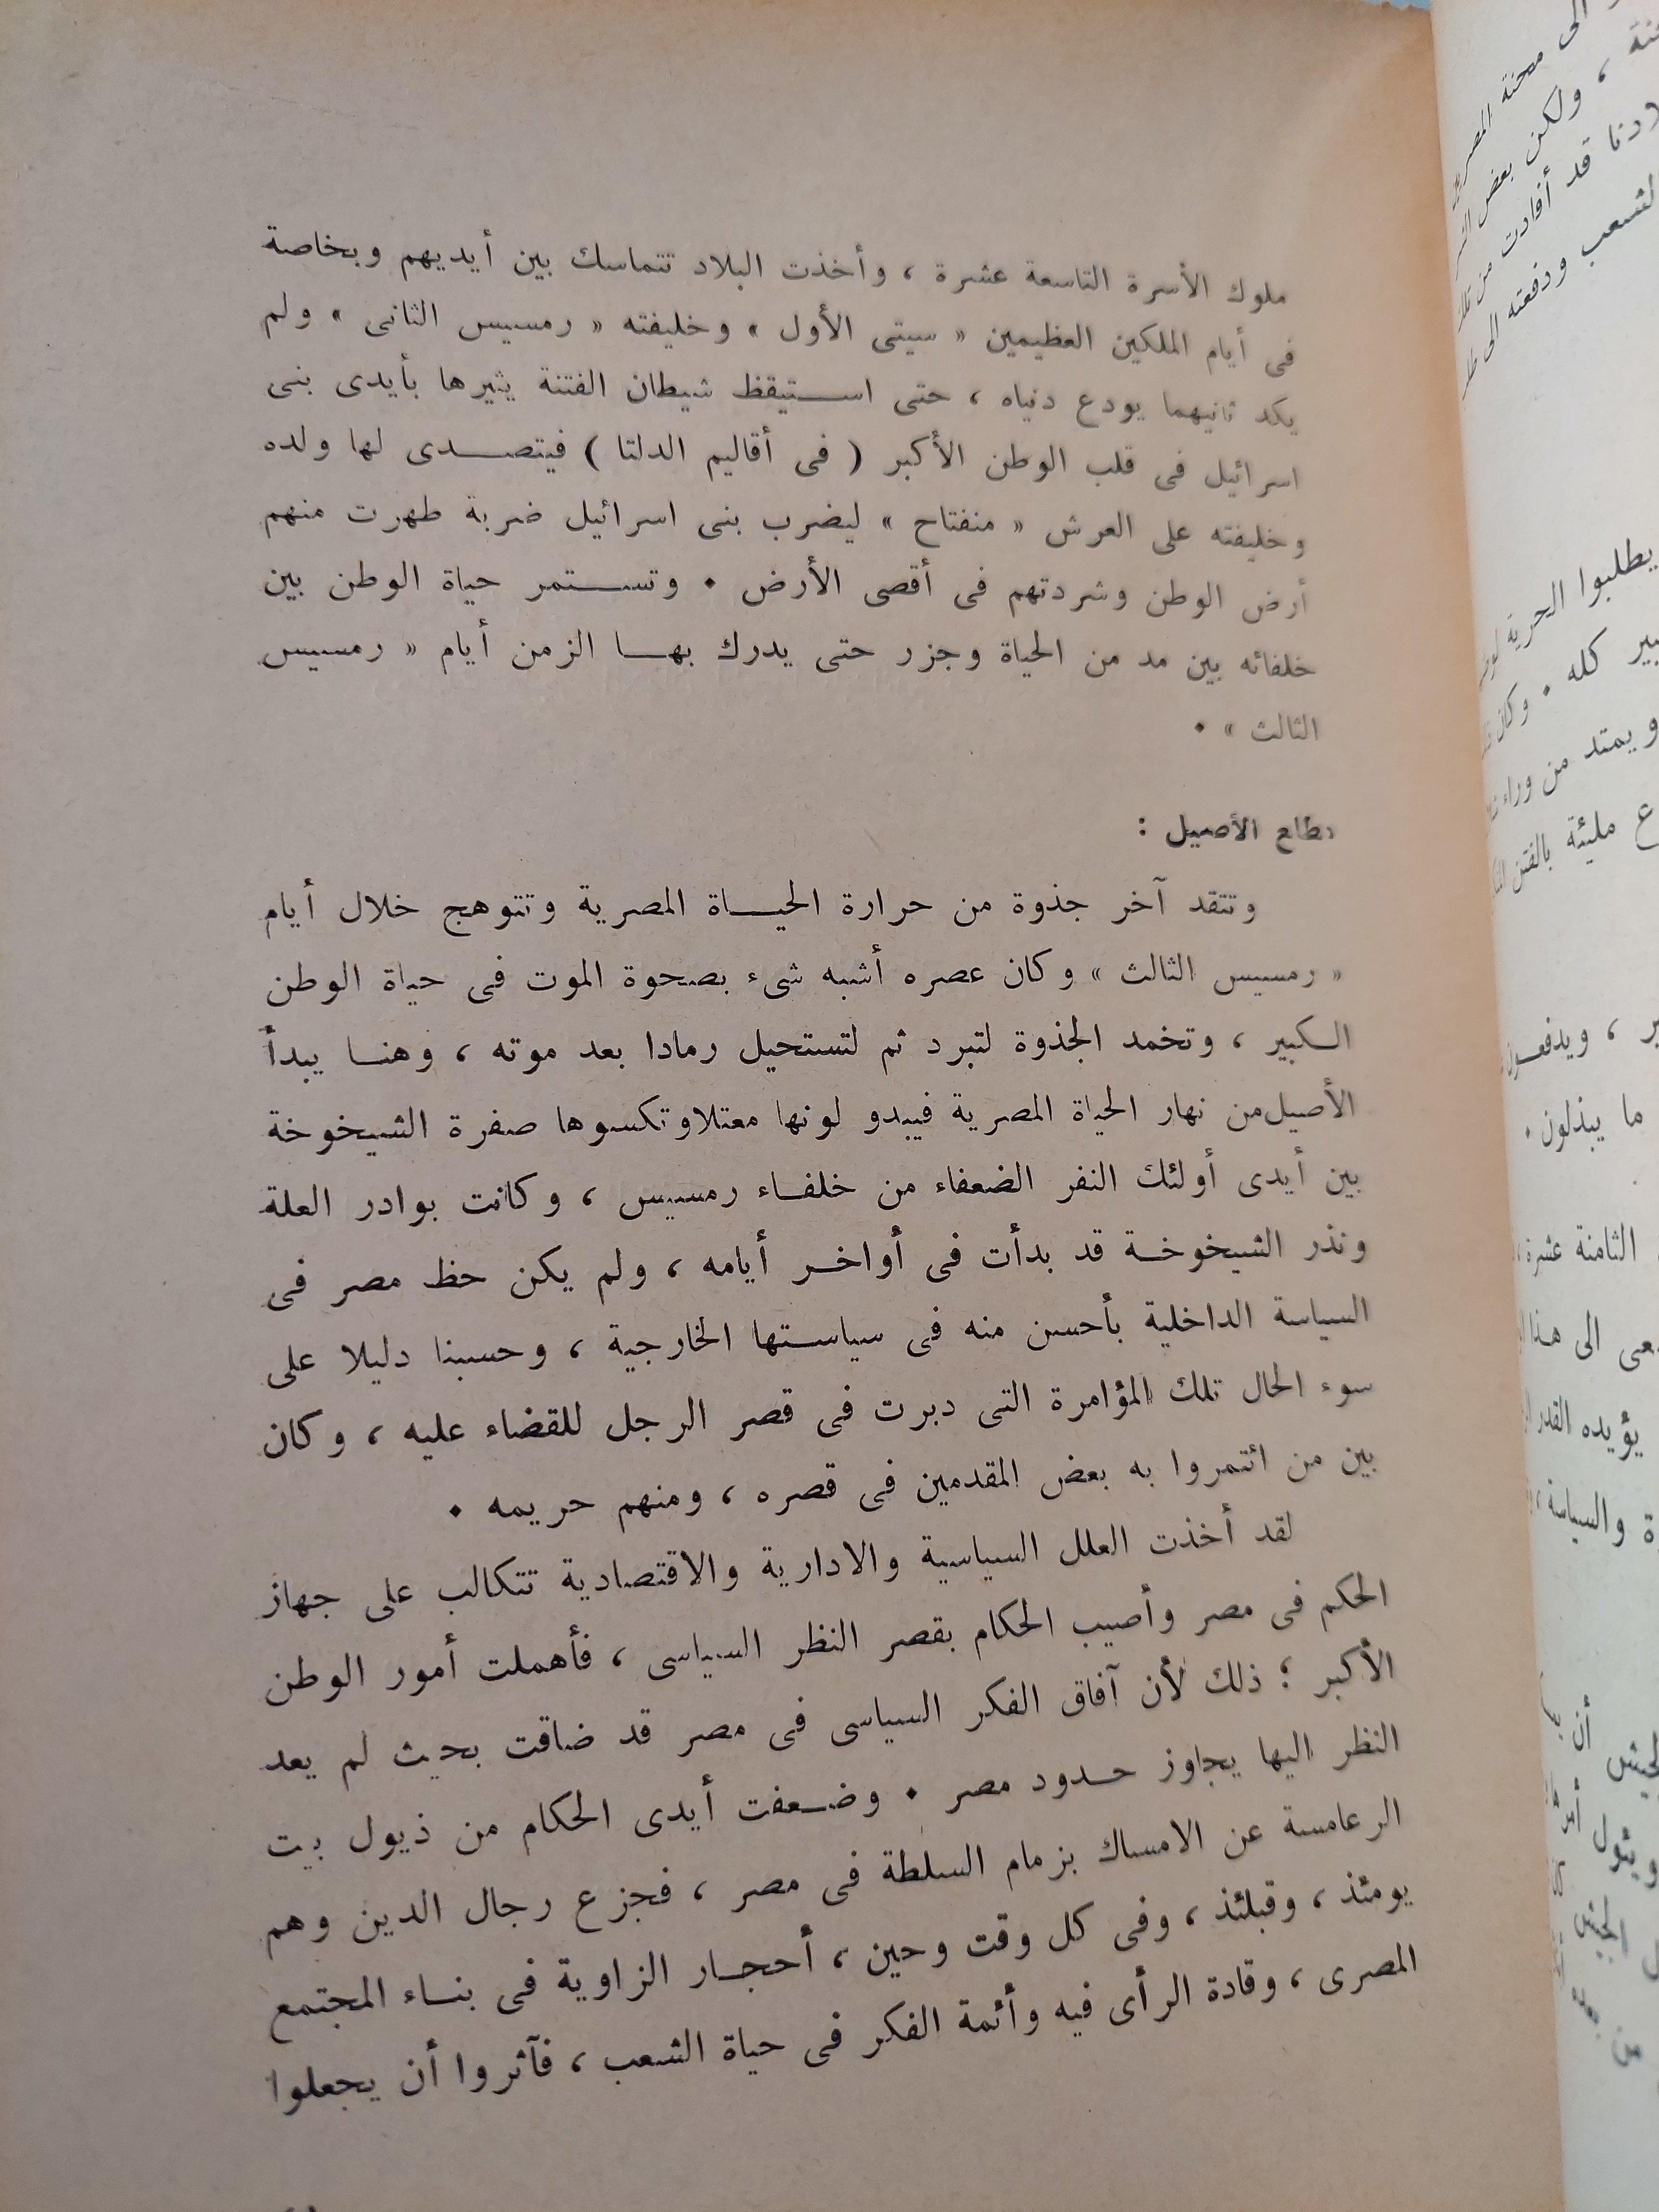 ملوك الأسرة التاسعة عشرة ، وأخذت البلاد تتماسك بين أيديهم وبخاصة
فى أيام الملكين العظيمين « سيتى الأول » وخليفته « رمسيس الثانى » ولم
يكد ثانيهما يودع دنياه ، حتى استيقظ شيطان الفتنة يثيرها بأيدى بنى
اسرائيل فى قلب الوطن الأكبر ( فى أقاليم الدلتا ) فيتصدى لها ولده
وخليفته على العرش « منفتاح » ليضرب بنى اسرائيل ضربة طهرت منهم
أرض الوطن وشردتهم فى أقصى الأرض . وتستمر حياة الوطن بين
خلفائه بين مد من الحياة وجزر حتى يدرك بها الزمن أيام « رمسيس
الثالث » .
الأصيل :
وتتقد آخر جذوة من حرارة الحياة المصرية وتتوهج خلال أيام
« رمسيس الثالث » وكان عصره أشبه شىء بصحوة الموت فى حياة الوطن
الكبير ، وتخمد الجذوة لتبرد ثم لتستحيل رمادا بعد موته ، وهنا يبدأ
الأصيل من نهار الحياة المصرية فيبدو لونها معتلا وتكسوها صفرة الشيخوخة
بين أيدى أولئك النفر الضعفاء من خلفاء رمسيس ، وكانت بوادر العلة
ونذر الشيخوخة قد بدأت فى أواخر أيامه ، ولم يكن حظ مصر فى
السياسة الداخلية بأحسن منه فى سياستها الخارجية ، وحسبنا دليلا على
سوء الحال تلك المؤامرة التى دبرت فى قصر الرجل للقضاء عليه ، وكان
بين من ائتمروا به بعض المقدمين فى قصره ، ومنهم حريمه .
لقد أخذت العلل السياسية والادارية والاقتصادية تتكالب على جهاز
الحكم فى مصر وأصيب الحكام بقصر النظر السياسى ، فأهملت أمور الوطن
الأكبر ؛ ذلك لأن آفاق الفكر السياسى فى مصر قد ضاقت بحيث لم يعد
النظر اليها يجاوز حدود مصر . وضعفت أيدى الحكام من ذيول بيت
الرعامسة عن الامساك بزمام السلطة فى مصر ، فجزع رجال الدين وهم
يومئذ ، وقبلئذ ، وفى كل وقت وحين ، أحجار الزاوية فى بناء المجتمع
المصرى ، وقادة الرأى فيه وأئمة الفكر فى حياة الشعب ، فآثروا أن يجعلوا
الى محنة
، ولكن بعض
قد أفادت من
ودفعته الى
يطلبوا الحرية
كله . وكان
ويمتد من وراء
مليئة بالفتن
، ويدفعون
ما يبذلون .
الثامنة عشرة
الى هذا
يؤيده القدر
والسياسة ،
أن
ويئول